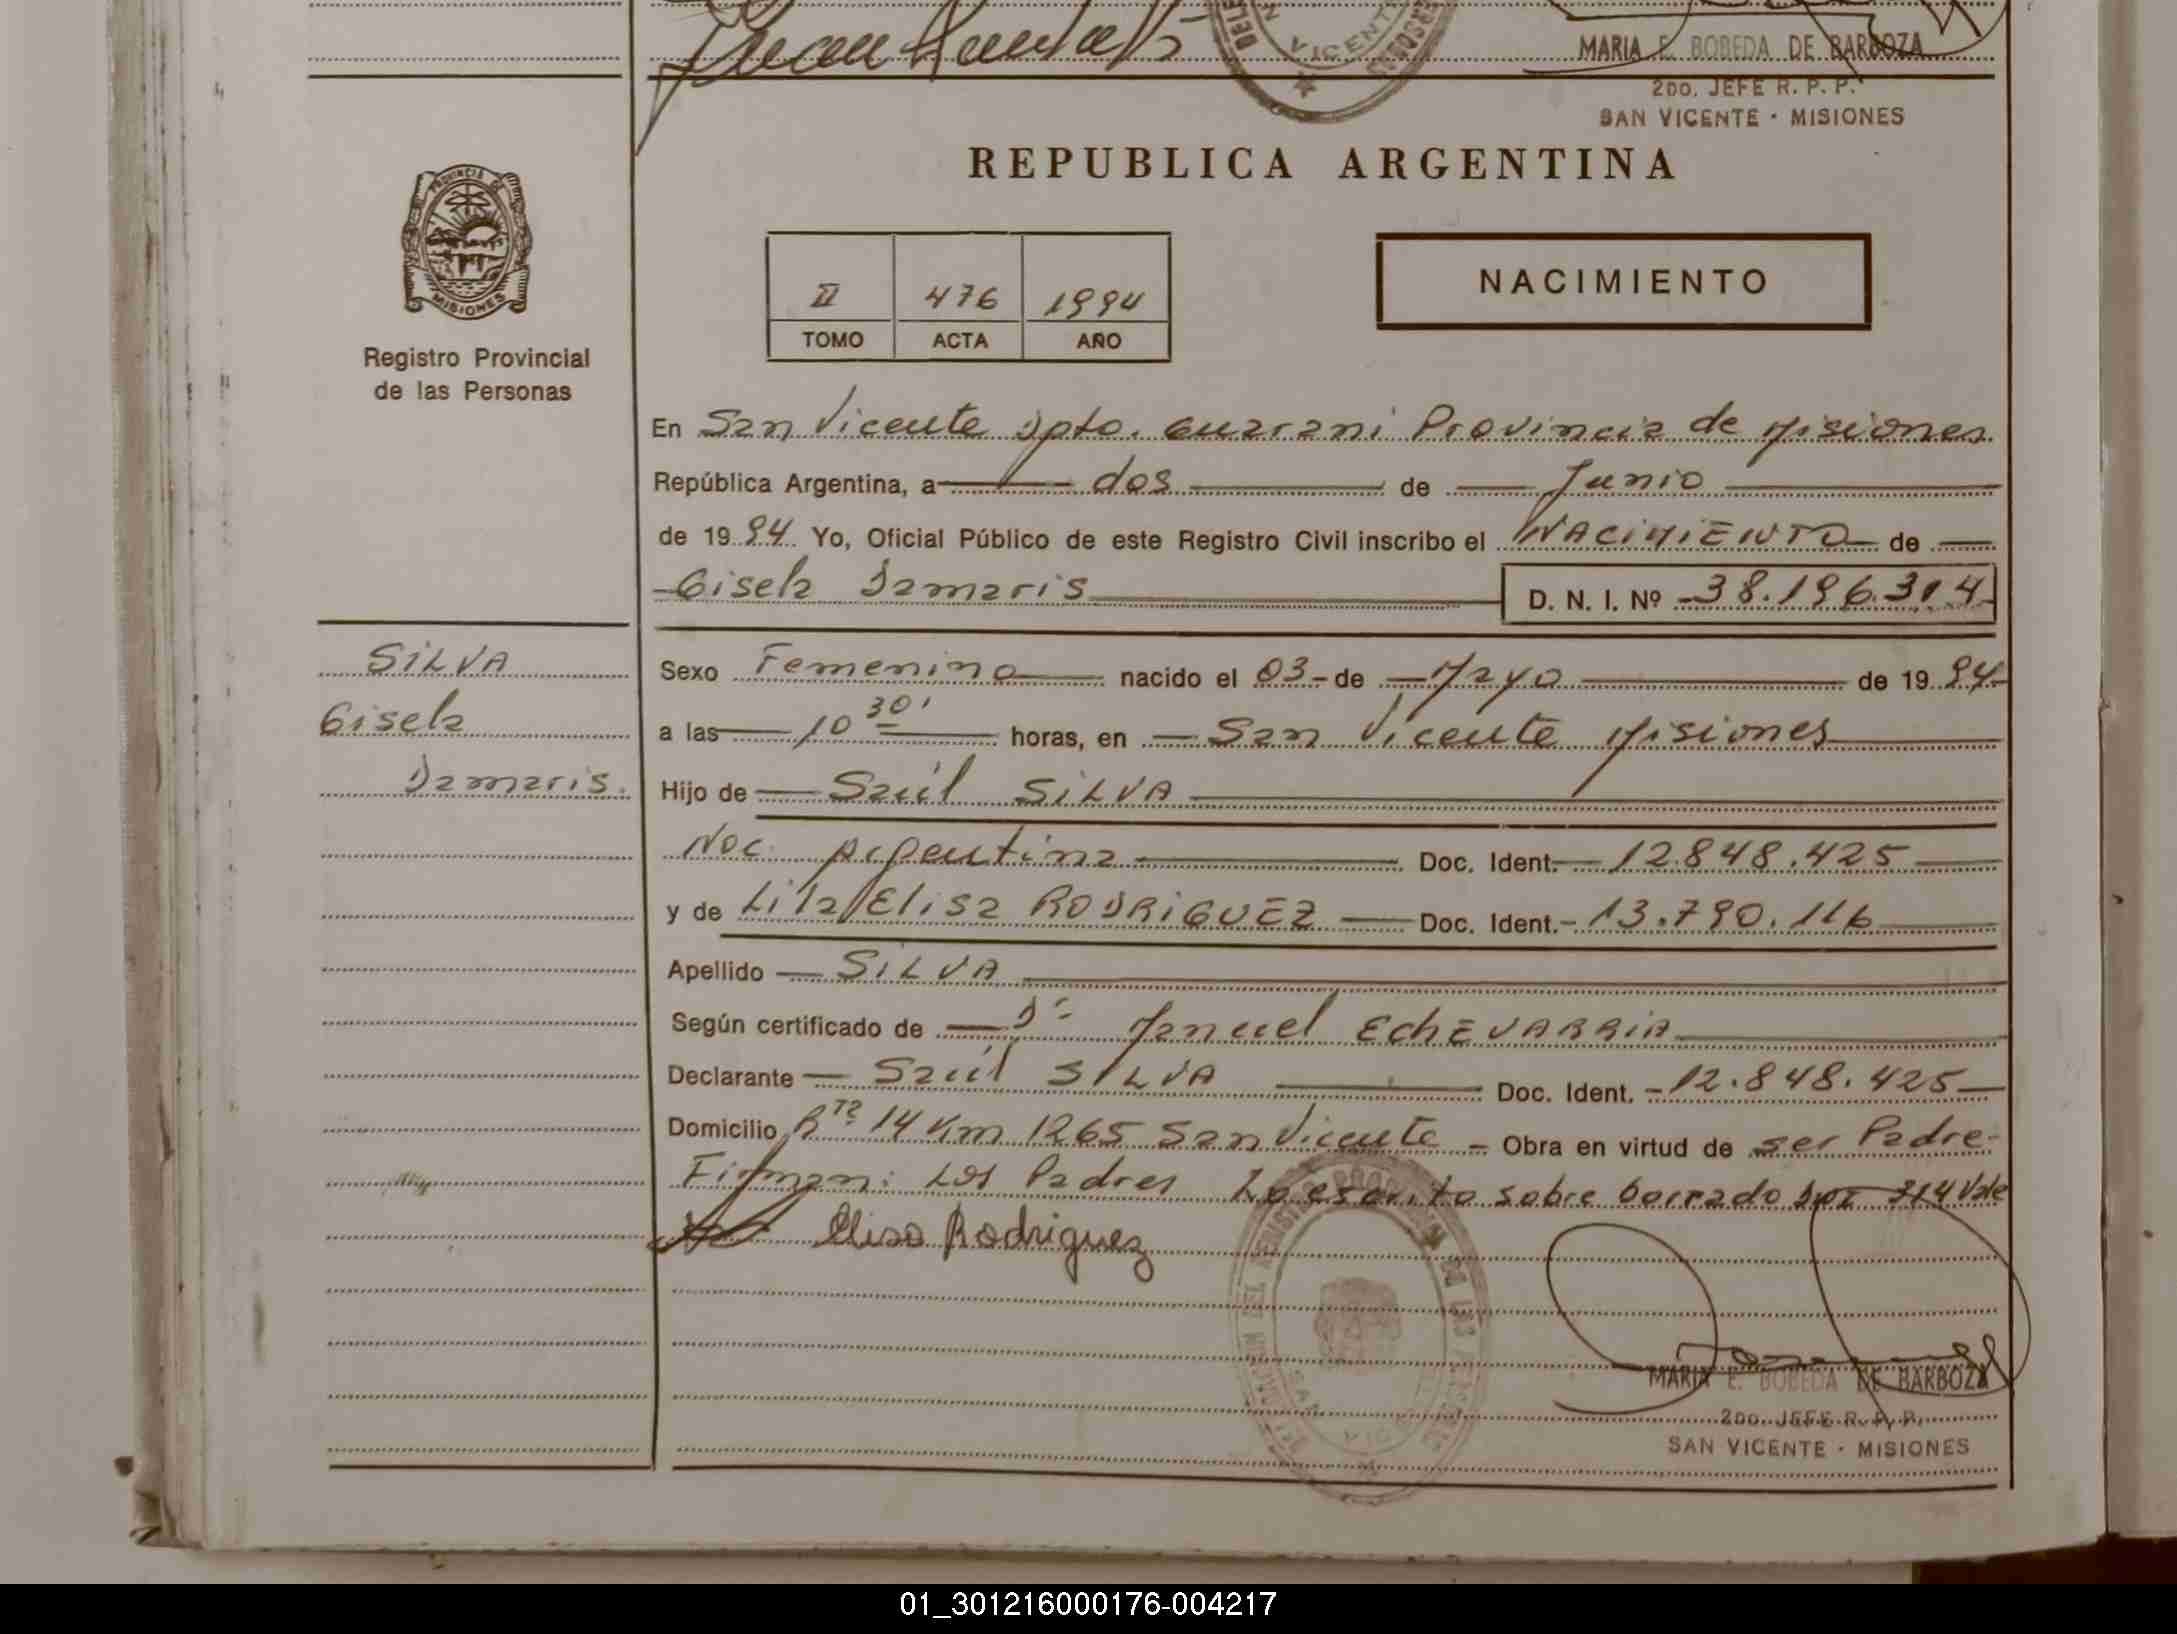 VICENTE
MARIA E. BOBEDA DE BARBOZA
2DO. JEFE R. P. P.
SAN VICENTE - MISIONES
PROVINCIA DE
MISIONES
Registro Provincial
de las Personas
REPUBLICA ARGENTINA
II 476 1994
TOMO ACTA AÑO
NACIMIENTO
En San Vicente Dpto. Guarani Provincia de Misiones
República Argentina, a dos de Junio
de 19 94 Yo, Oficial Público de este Registro Civil inscribo el NACIMIENTO de
Gisela Damaris D. N. I. Nº 38.196.314
SILVA
Gisela
Damaris.
Sexo Femenino nacido el 03 de Mayo de 19 94
a las 10 30' horas, en San Vicente Misiones
Hijo de Saúl SILVA
Nac. Argentina Doc. Ident. 12.848.425
y de Lila Elisa RODRIGUEZ Doc. Ident. 13.790.116
Apellido SILVA
Según certificado de Dr. Manuel EChEVARRIA
Declarante Saúl SILVA Doc. Ident. 12.848.425
Domicilio Rta 14 Km 1265 San Vicente - Obra en virtud de ser Padre-
Firman: Los Padres Lo escrito sobre borrado 314 Vale
Elisa Rodriguez
MARIA E. BOBEDA DE BARBOZA
2DO. JEFE R. P. P.
SAN VICENTE - MISIONES
01_301216000176-004217